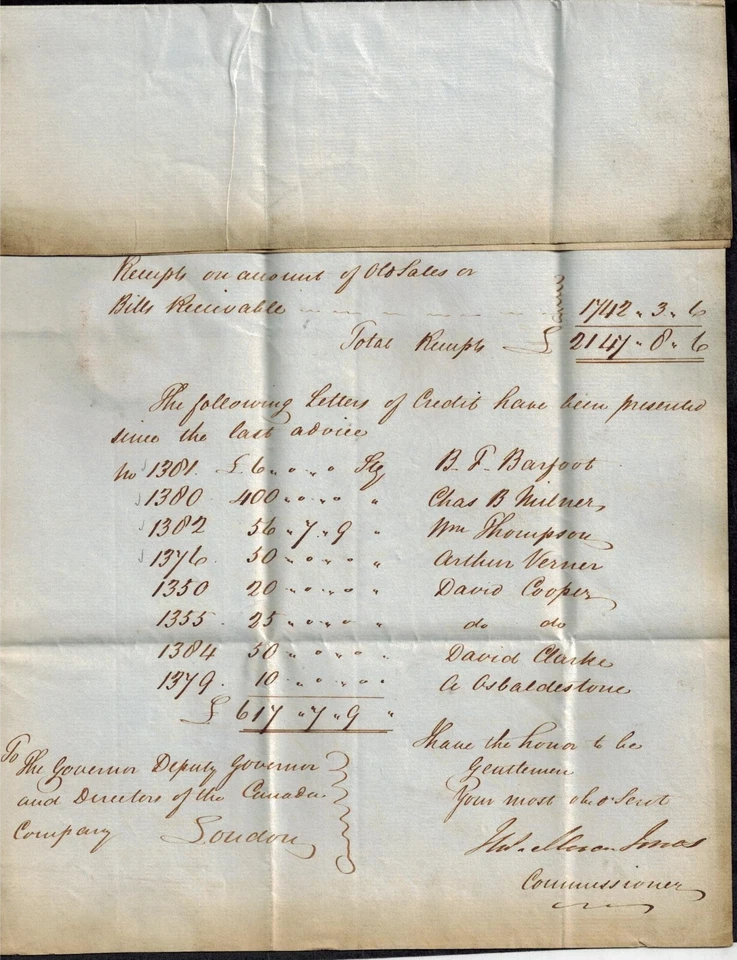 Receipts on account of Old Sales or
Bills Receivable 1742 " 3 " 6
Total Receipts £ 2147 " 8 " 6
The following Letters of Credit have been presented
since the last advice
No 1381. £ 6 " 0 " 0 Stg B. F. Barfoot
1380 400 " 0 " 0 " Chas B Milner
1382 56 " 7 " 9 " Wm Thompson
1376 50 " 0 " 0 " Arthur Verner
1350 20 " 0 " 0 " David Cooper
1355 25 " 0 " 0 " do do
1384 50 " 0 " 0 " David Clarke
1379. 10 " 0 " 0 " A Osbaldestone
£ 617 " 7 " 9 "
I have the honor to be
Gentlemen
Your most ob. Servt
Commissioner
To The Governor Deputy Governor
and Directors of the Canada
Company London